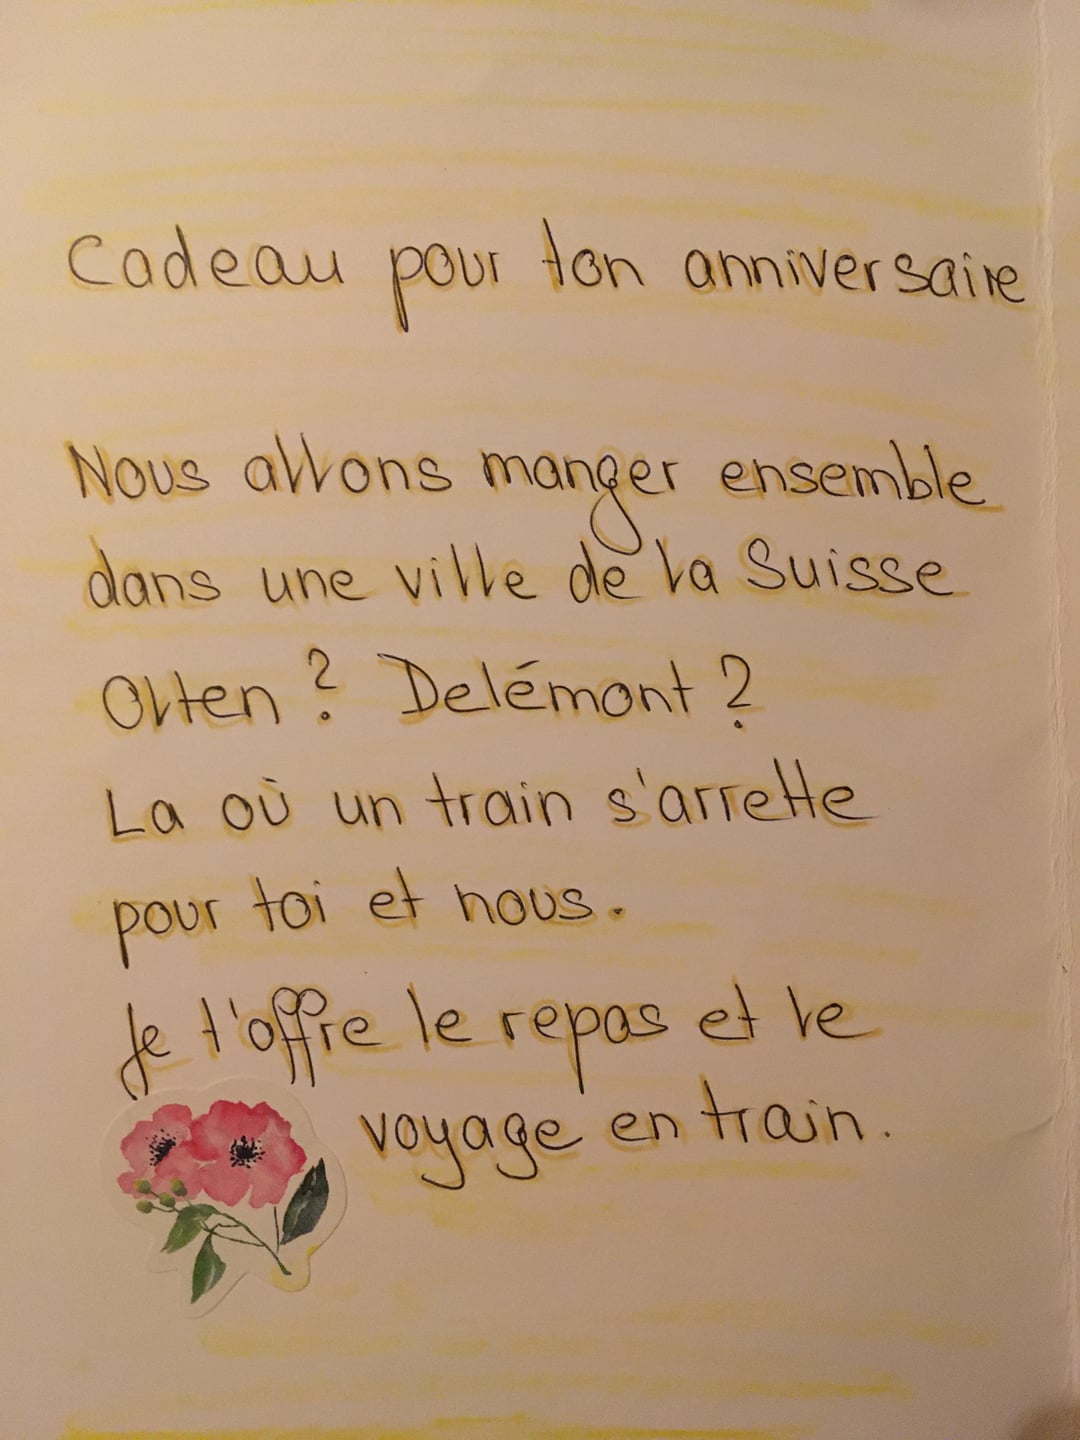 Cadeau pour ton anniversaire
Nous allons manger ensemble
dans une ville de la Suisse
Olten ? Delémont ?
La où un train s'arrette
pour toi et nous.
Je t'offre le repas et le
voyage en train.